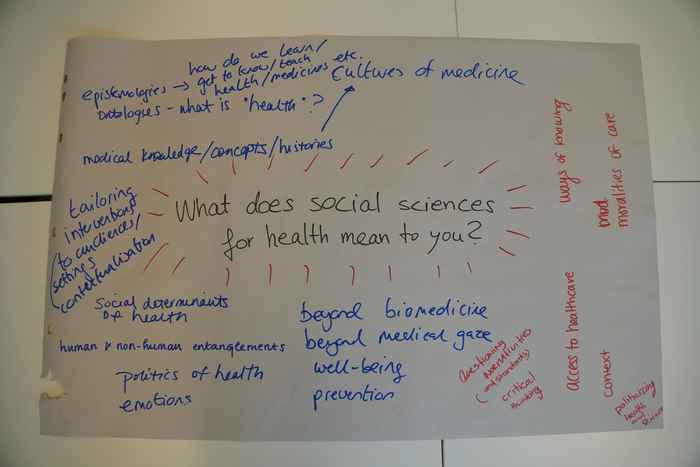 how do we learn/
get to know/teach
epistemologies → health/medicines etc.
Cultures of medicine
Ontologies - what is "health"?
medical knowledge/concepts/histories
tailoring
interventions
to audiences/
settings
contextualisation
What does social sciences
for health mean to you?
social determinants
of health
human & non-human entanglements
politics of health
emotions
beyond biomedicine
beyond medical gaze
well-being
prevention
questioning
(and standards)
critical
thinking
ways of knowing
moralities of care
access to healthcare
context
politicizing
health
and science